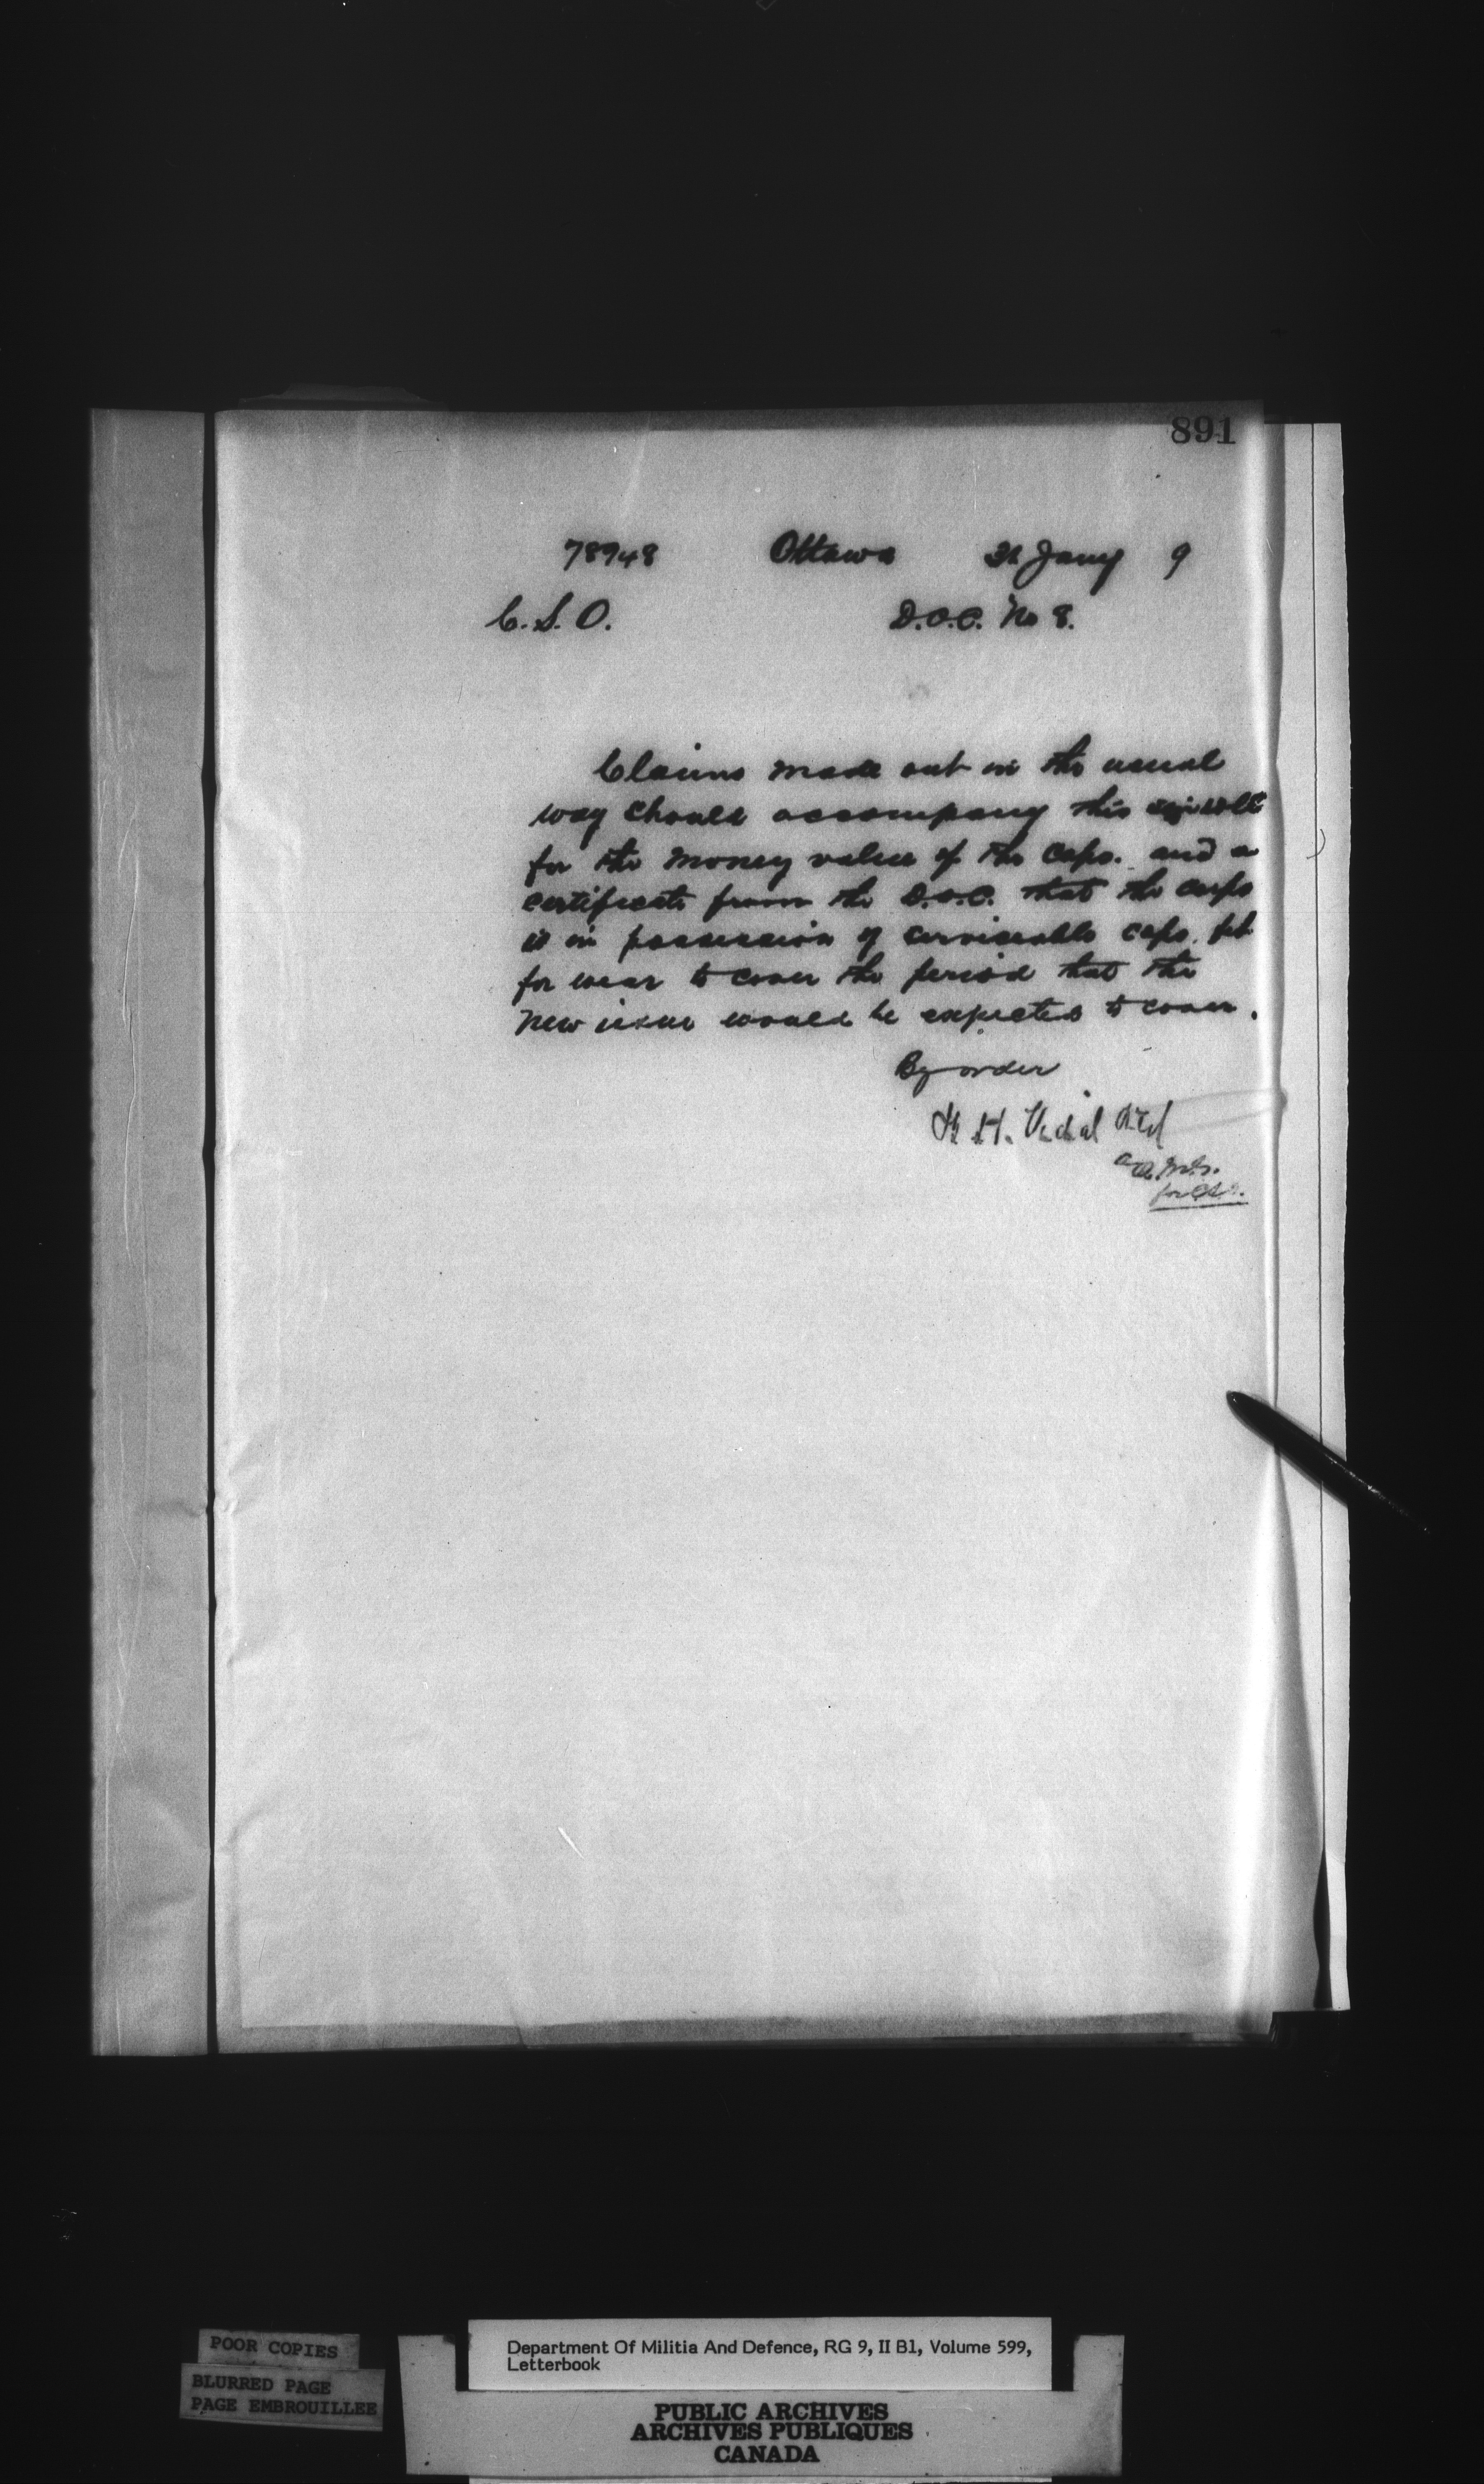 891
78948 Ottawa 31 Jany 9
C.S.O. D.O.C. No 8.
Claims made out in the usual
way should accompany this
for the money value of the caps. and a
certificate from the D.O.C. that the corps
is in possession of serviceable caps. fit
for wear to cover the period that the
new issue would be expected to cover.
By order
H. Vidal
for C.S.O.
POOR COPIES
BLURRED PAGE
PAGE EMBROUILLEE
Department Of Militia And Defence, RG 9, II B1, Volume 599,
Letterbook
PUBLIC ARCHIVES
ARCHIVES PUBLIQUES
CANADA